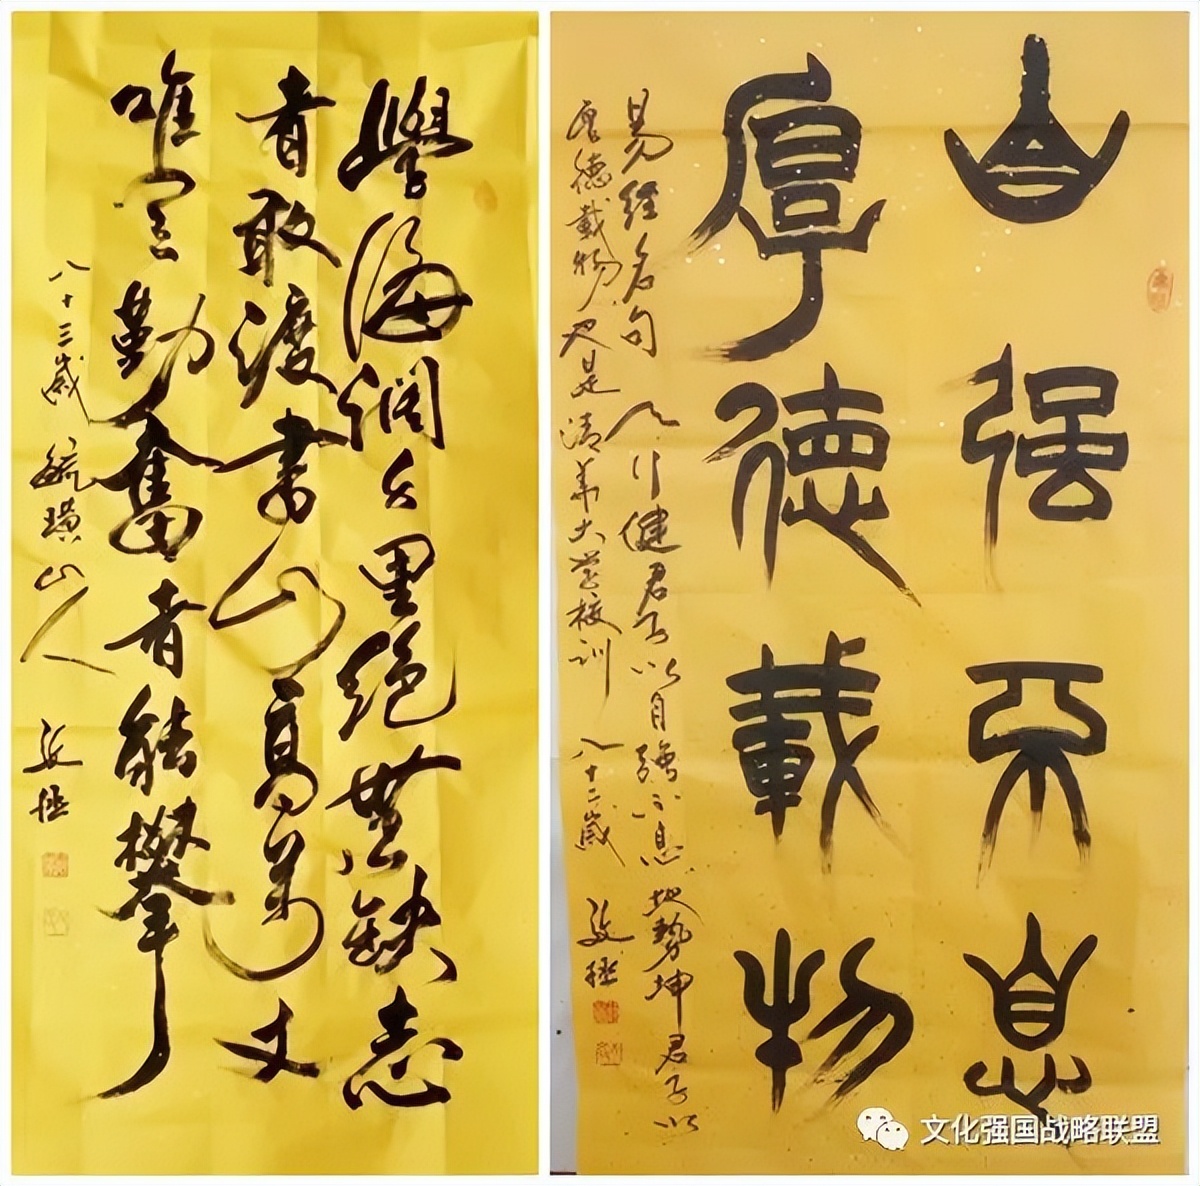 學海阔里绝無缺志
者敢渡書山高萬丈
唯勤奮者能攀
八十三歲 毓璜山人
自强不息
厚德載物
易经名句 天行健君子以自強不息 地勢坤君子以
厚德載物 又是清华大学校训 八十二歲
文化强国战略联盟